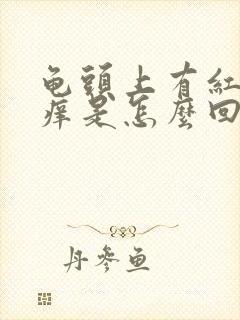 龟頭上有紅
痒是怎麼回
丹參魚